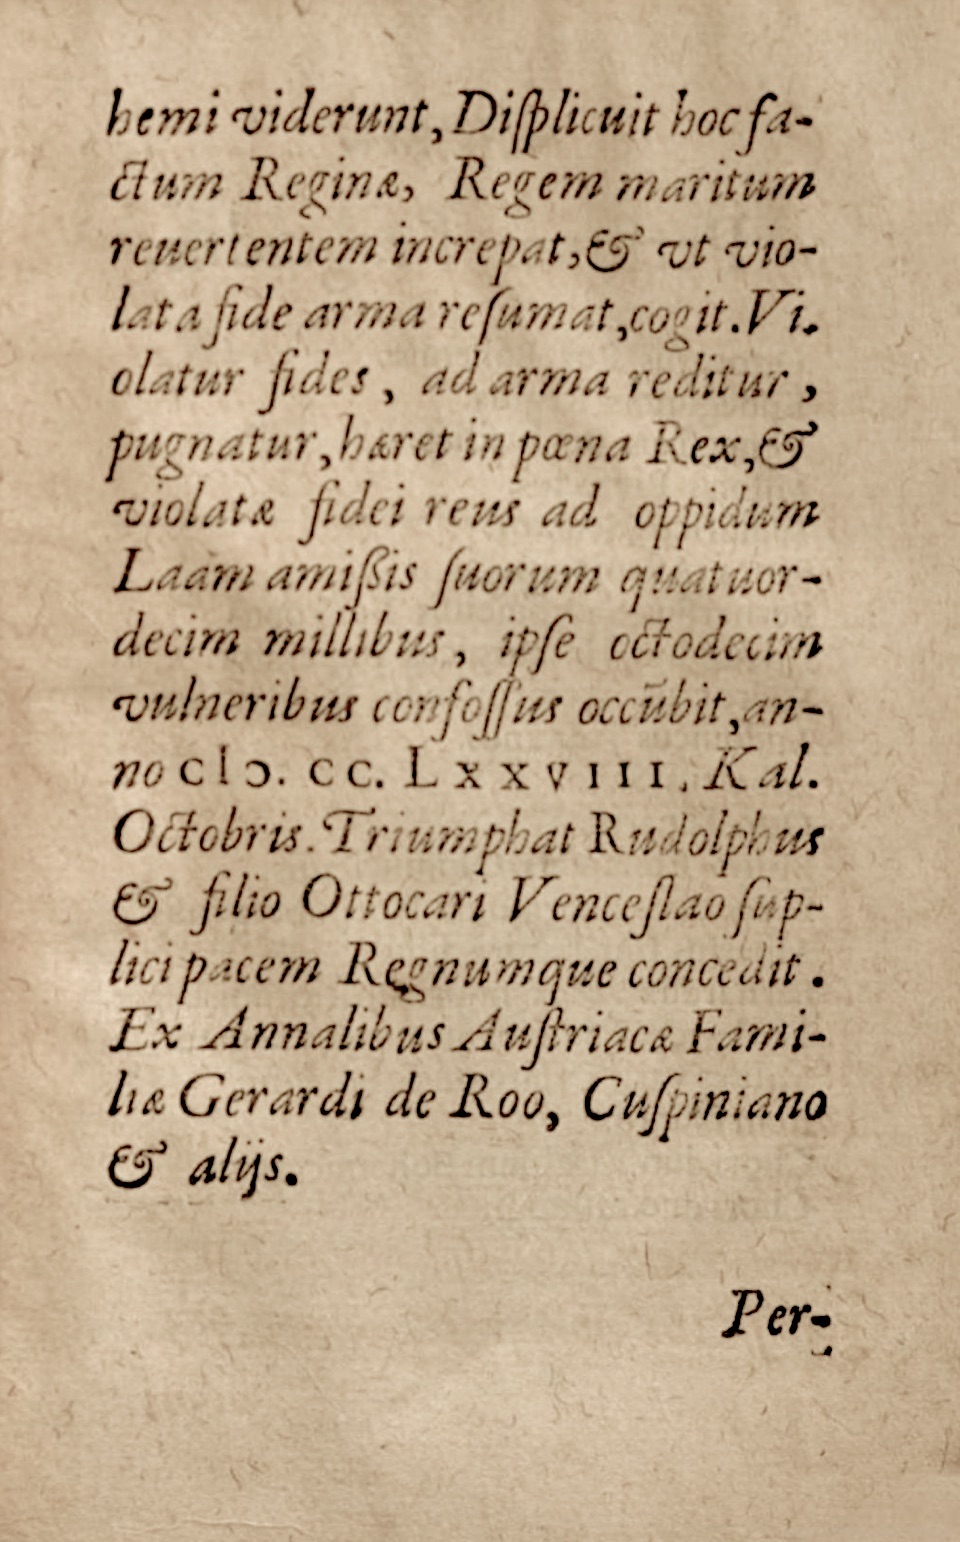 hemi viderunt, Diſplicuit hoc fa-
ctum Reginæ, Regem maritum
reuertentem increpat, & vt vio-
lata fide arma reſumat, cogit. Vi-
olatur fides, ad arma reditur,
pugnatur, hæret in pœna Rex, &
violatæ fidei reus ad oppidum
Laam amißis ſuorum quatuor-
decim millibus, ipſe octodecim
vulneribus confoſſus occūbit, an-
no CIↃ. CC. LXXVIII. Kal.
Octobris. Triumphat Rudolphus
& filio Ottocari Venceſlao ſup-
lici pacem Regnumque concedit.
Ex Annalibus Auſtriacæ Fami-
liæ Gerardi de Roo, Cuſpiniano
& alijs.
Per-